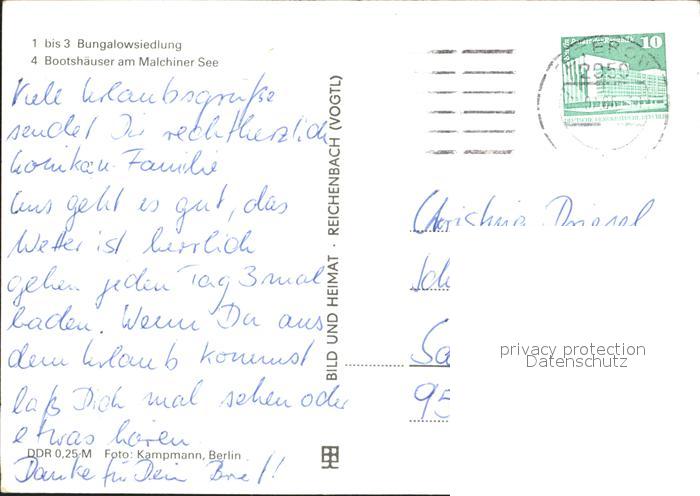 1 bis 3 Bungalowsiedlung
4 Bootshäuser am Malchiner See
Viele Urlaubsgrüße
sendet Dir recht herzlich
Monika u. Familie
Uns geht es gut, das
Wetter ist herrlich
gehen jeden Tag 3 mal
baden. Wenn Du aus
dem Urlaub kommst
laß Dich mal sehen oder
etwas hören.
DDR 0,25 M Foto: Kampmann, Berlin
Danke für Dein Brief!
BILD UND HEIMAT · REICHENBACH (VOGTL)
10
2050
Christina
Sa
95
privacy protection
Datenschutz